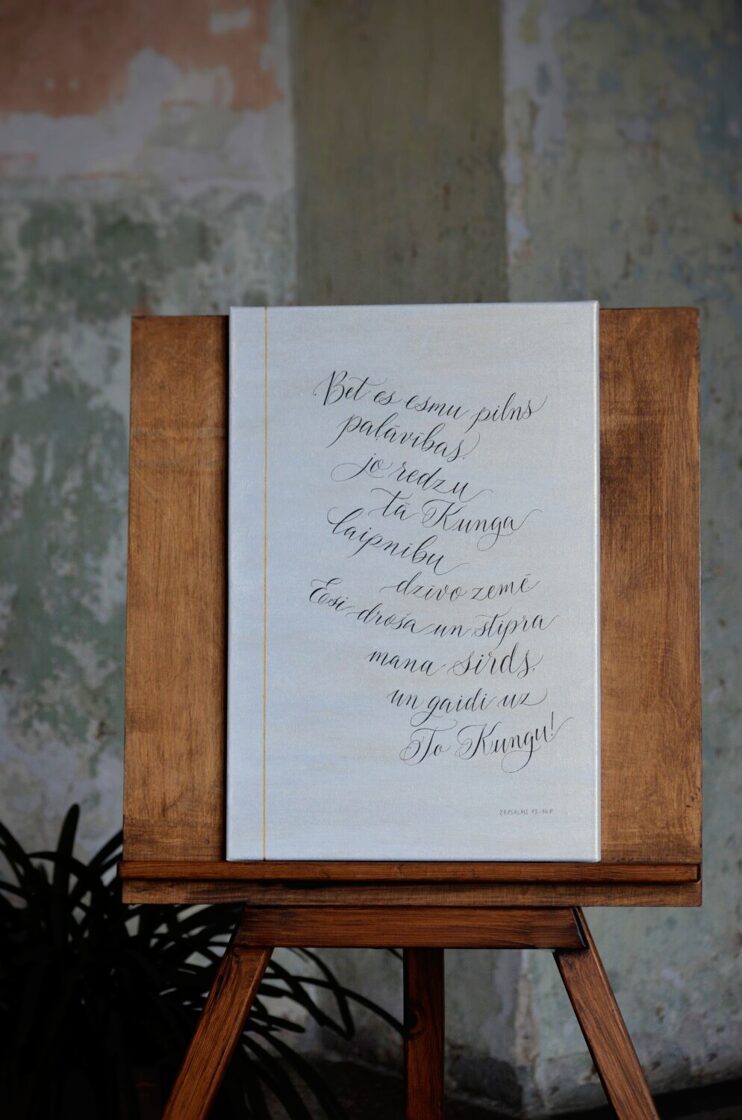 Bet es esmu pilns
paļāvības,
jo redzu
tā Kunga
laipnību
dzīvo zemē
Esi droša un stipra
mana sirds,
un gaidi uz
To Kungu!
27.PSALMS